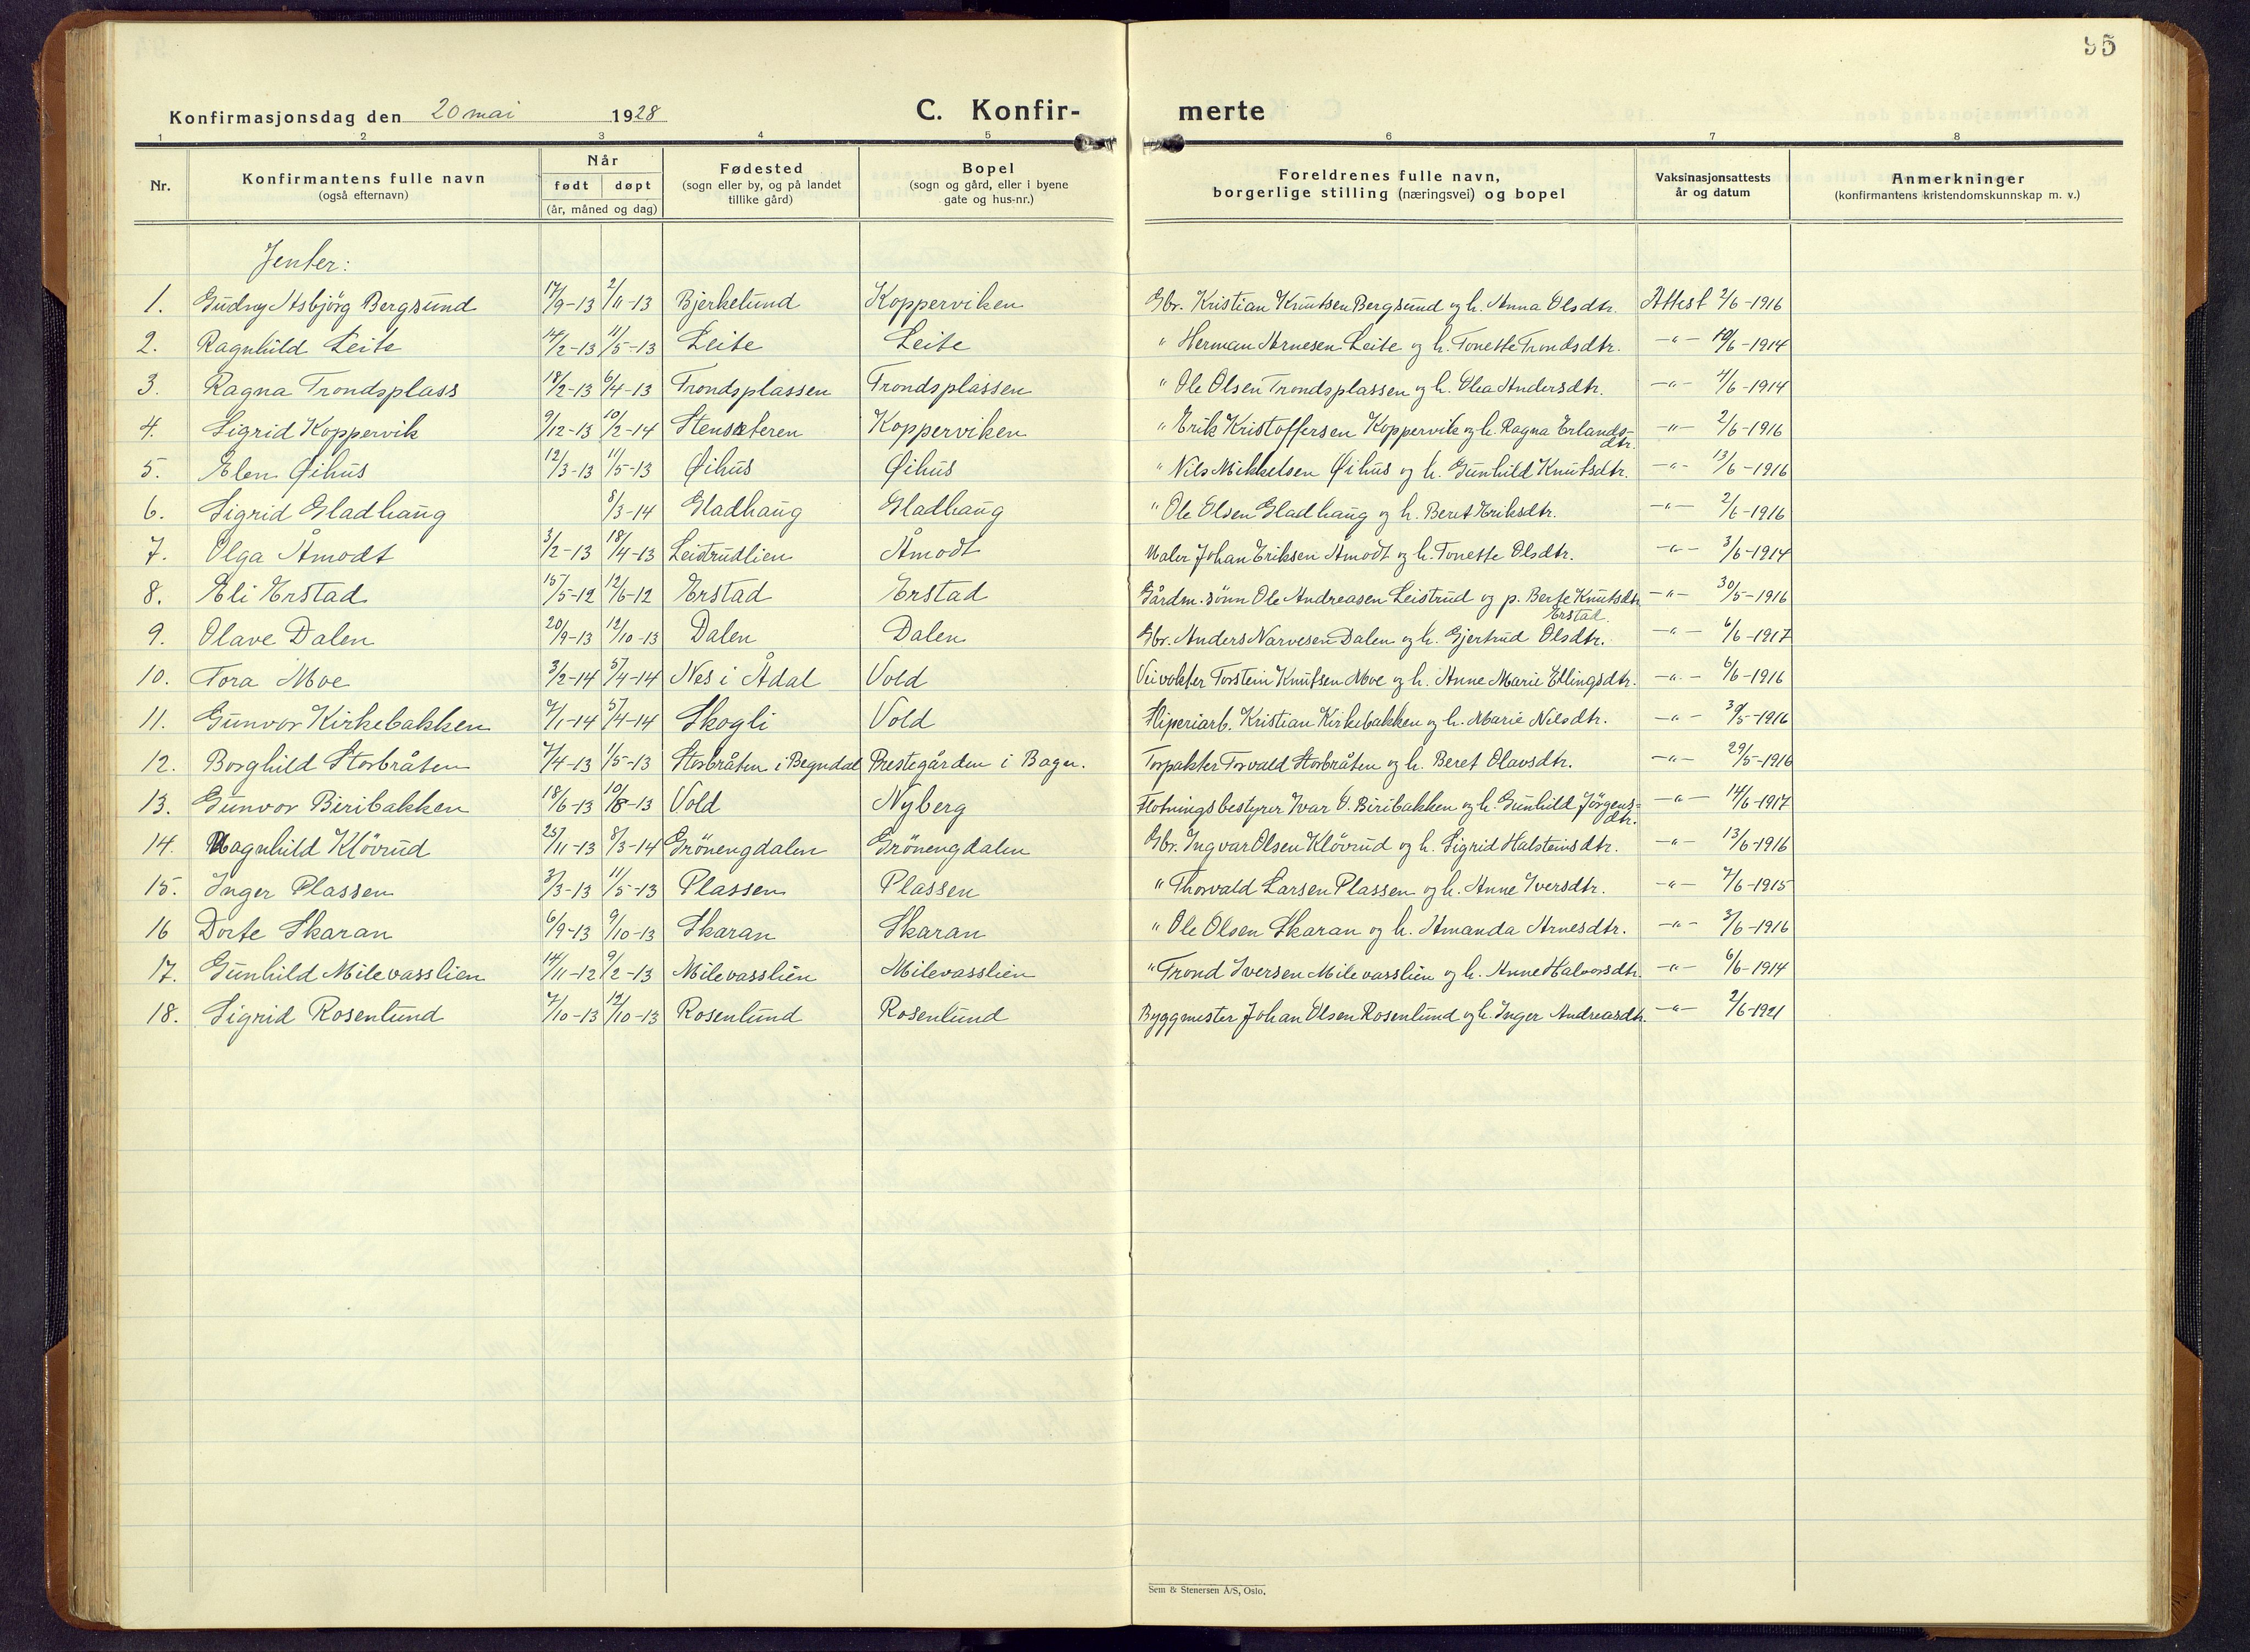 95
Konfirmasjonsdag den 20 mai 1928 C. Konfir- merte
1 2 3 4 5 6 7 8
Nr. Konfirmantens fulle navn (også efternavn) Når født døpt (år, måned og dag) Fødested (sogn eller by, og på landet tillike gård) Bopel (sogn og gård, eller i byene gate og hus-nr.) Foreldrenes fulle navn, borgerlige stilling (næringsvei) og bopel Vaksinasjonsattests år og datum Anmerkninger (konfirmantens kristendomskunnskap m. v.)
Jenter:
1. Gudny Asbjörg Bergsund 17/9-13 2/11-13 Bjerkelund Kopperviken Gbr. Kristian Knutsen Bergsund og h. Anna Olsdtr. Attest 2/6-1916
2. Ragnhild Leite 14/2-13 11/5-13 Leite Leite " Herman Arnesen Leite og h. Tonette Trondsdtr. -"- 10/6-1914
3. Ragna Trondsplass 18/2-13 6/4-13 Trondsplassen Trondsplassen " Ole Olsen Trondsplassen og h. Olea Andersdtr. -"- 4/6-1914
4. Sigrid Koppervik 9/12-13 10/2-14 Stensæteren Kopperviken " Erik Kristoffersen Koppervik og h. Ragna Erlands-dtr. -"- 2/6-1916
5. Elen Øihus 12/3-13 11/5-13 Øihus Øihus " Nils Mikkelsen Øihus og h. Gunhild Knutsdtr. -"- 13/6-1916
6. Sigrid Gladhaug 8/3-14 Gladhaug Gladhaug " Ole Olsen Gladhaug og h. Beret Eriksdtr. -"- 2/6-1916
7. Olga Åmodt 3/2-13 18/4-13 Leistrudlien Åmodt Maler Johan Eriksen Åmodt og h. Tonette Olsdtr. -"- 3/6-1914
8. Eli Erstad 15/5-12 12/6-12 Erstad Erstad Gårdm. sönn Ole Andreasen Leistrud og p. Berte Knutsdtr Erstad. -"- 30/5-1916
9. Olave Dalen 20/9-13 12/10-13 Dalen Dalen Gbr. Anders Narvesen Dalen og h. Gjertrud Olsdtr. -"- 6/6-1917
10. Tora Moe 3/2-14 5/4-14 Nes i Ådal Vold Veivokter Torstein Knutsen Moe og h. Anne Marie Ellingsdtr. -"- 6/6-1916
11. Gunvor Kirkebakken 7/1-14 5/4-14 Skogli Vold Sliperiarb. Kristian Kirkebakken og h. Marie Nilsdtr. -"- 30/5-1916
12. Borghild Storbråten 7/4-13 11/5-13 Storbråten i Begndal Prestegården i Bagn. Torpakter Torvald Storbråten og h. Beret Olavsdtr. -"- 29/5-1916
13. Gunvor Biribakken 18/6-13 10/8-13 Vold Nyberg Flotningsbestyrer Ivar O. Biribakken og h. Gunhild Jörgens-dtr. -"- 14/6-1917
14. Magnhild Klövrud 25/11-13 8/3-14 Grönengdalen Grönengdalen Gbr. Ingvar Olsen Klövrud og h. Sigrid Halsteinsdtr. -"- 13/6-1916
15. Inger Plassen 3/3-13 11/5-13 Plassen Plassen " Thorvald Larsen Plassen og h. Anne Iversdtr. -"- 7/6-1915
16 Dorte Skaran 6/9-13 9/10-13 Skaran Skaran " Ole Olsen Skaran og h. Amanda Arnesdtr. -"- 3/6-1916
17. Gunhild Milevasslien 14/11-12 9/2-13 Milevasslien Milevasslien " Trond Iversen Milevasslien og h. Anne Halvorsdtr. -"- 6/6-1914
18. Sigrid Rosenlund 7/10-13 12/10-13 Rosenlund Rosenlund Byggmester Johan Olsen Rosenlund og h. Inger Andreasdtr. -"- 2/6-1921
Sem & Stenersen A/S, Oslo.